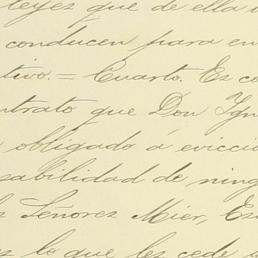 leyes que de ella
conducen para en
tivo. = Cuarto. Es co
ntrato que Don Ygn
obligado á evicció
sabilidad de ning
s Señores Mier, Es
s lo que les cede